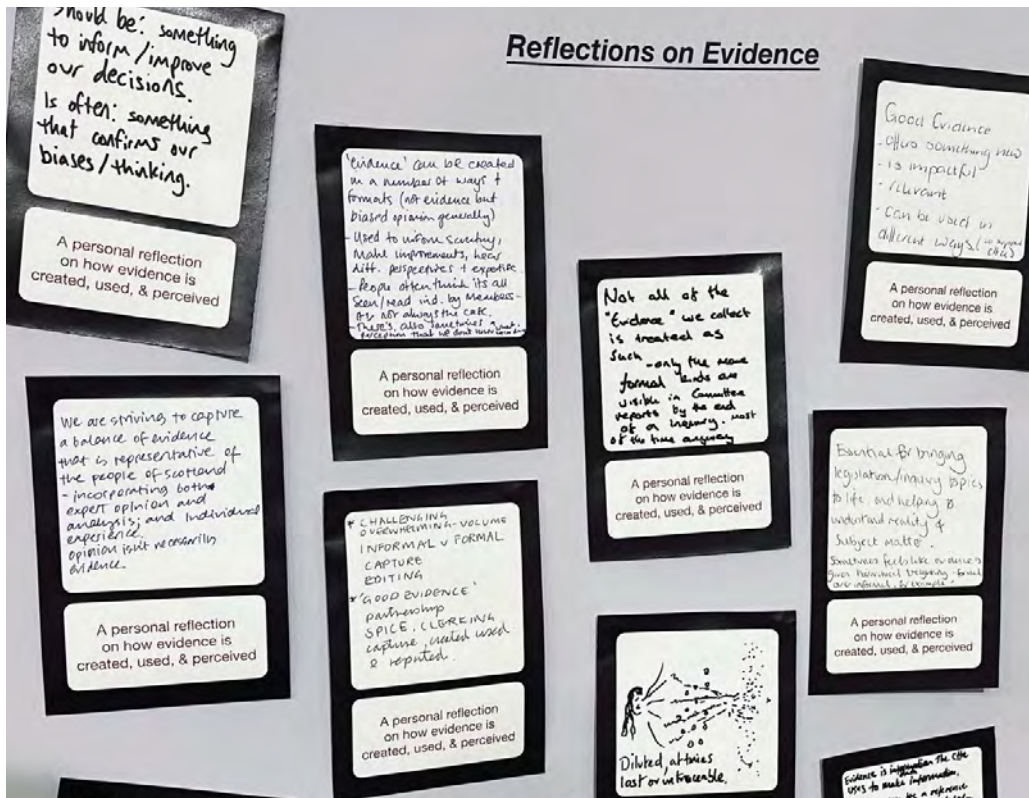 Reflections on Evidence
should be: something
to inform/improve
our decisions.
Is often: something
that confirms our
biases/thinking.
A personal reflection
on how evidence is
created, used, & perceived
'evidence' can be created
in a number of ways +
formats (not evidence but
biased opinion generally)
- Used to inform scrutiny,
make improvements, hear
diff. perspectives + expertise.
- People often think its all
seen/read ind. by Members -
not always the case.
- There's also sometimes a
perception that we don't
A personal reflection
on how evidence is
created, used, & perceived
Good Evidence
- offers something new
- is impactful
- relevant
- Can be used in
different ways
A personal reflection
on how evidence is
created, used, & perceived
Not all of the
"Evidence" we collect
is treated as
such
- only the more
formal kinds are
visible in Committee
reports by the end
of a inquiry. most
of the time anyway
A personal reflection
on how evidence is
created, used, & perceived
We are striving to capture
a balance of evidence
that is representative of
the people of scotland
- incorporating both
expert opinion and
analysis; and individual
experience.
opinion isn't necessarily
evidence.
A personal reflection
on how evidence is
created, used, & perceived
* CHALLENGING
OVERWHELMING-VOLUME
INFORMAL V FORMAL
CAPTURE
EDITING
* 'GOOD EVIDENCE'
partnership
SPICE, CLERKING
capture, created used
& reported.
A personal reflection
on how evidence is
created, used, & perceived
Essential for bringing
legislation/inquiry topics
to life, and helping to
understand reality of
subject matter.
Sometimes feels like evidence is
given hierarchical weighting - formal
over informal, for example.
A personal reflection
on how evidence is
created, used, & perceived
Diluted, at times
lost or untraceable.
Evidence is information the Cttee
uses to make information.
be a reference